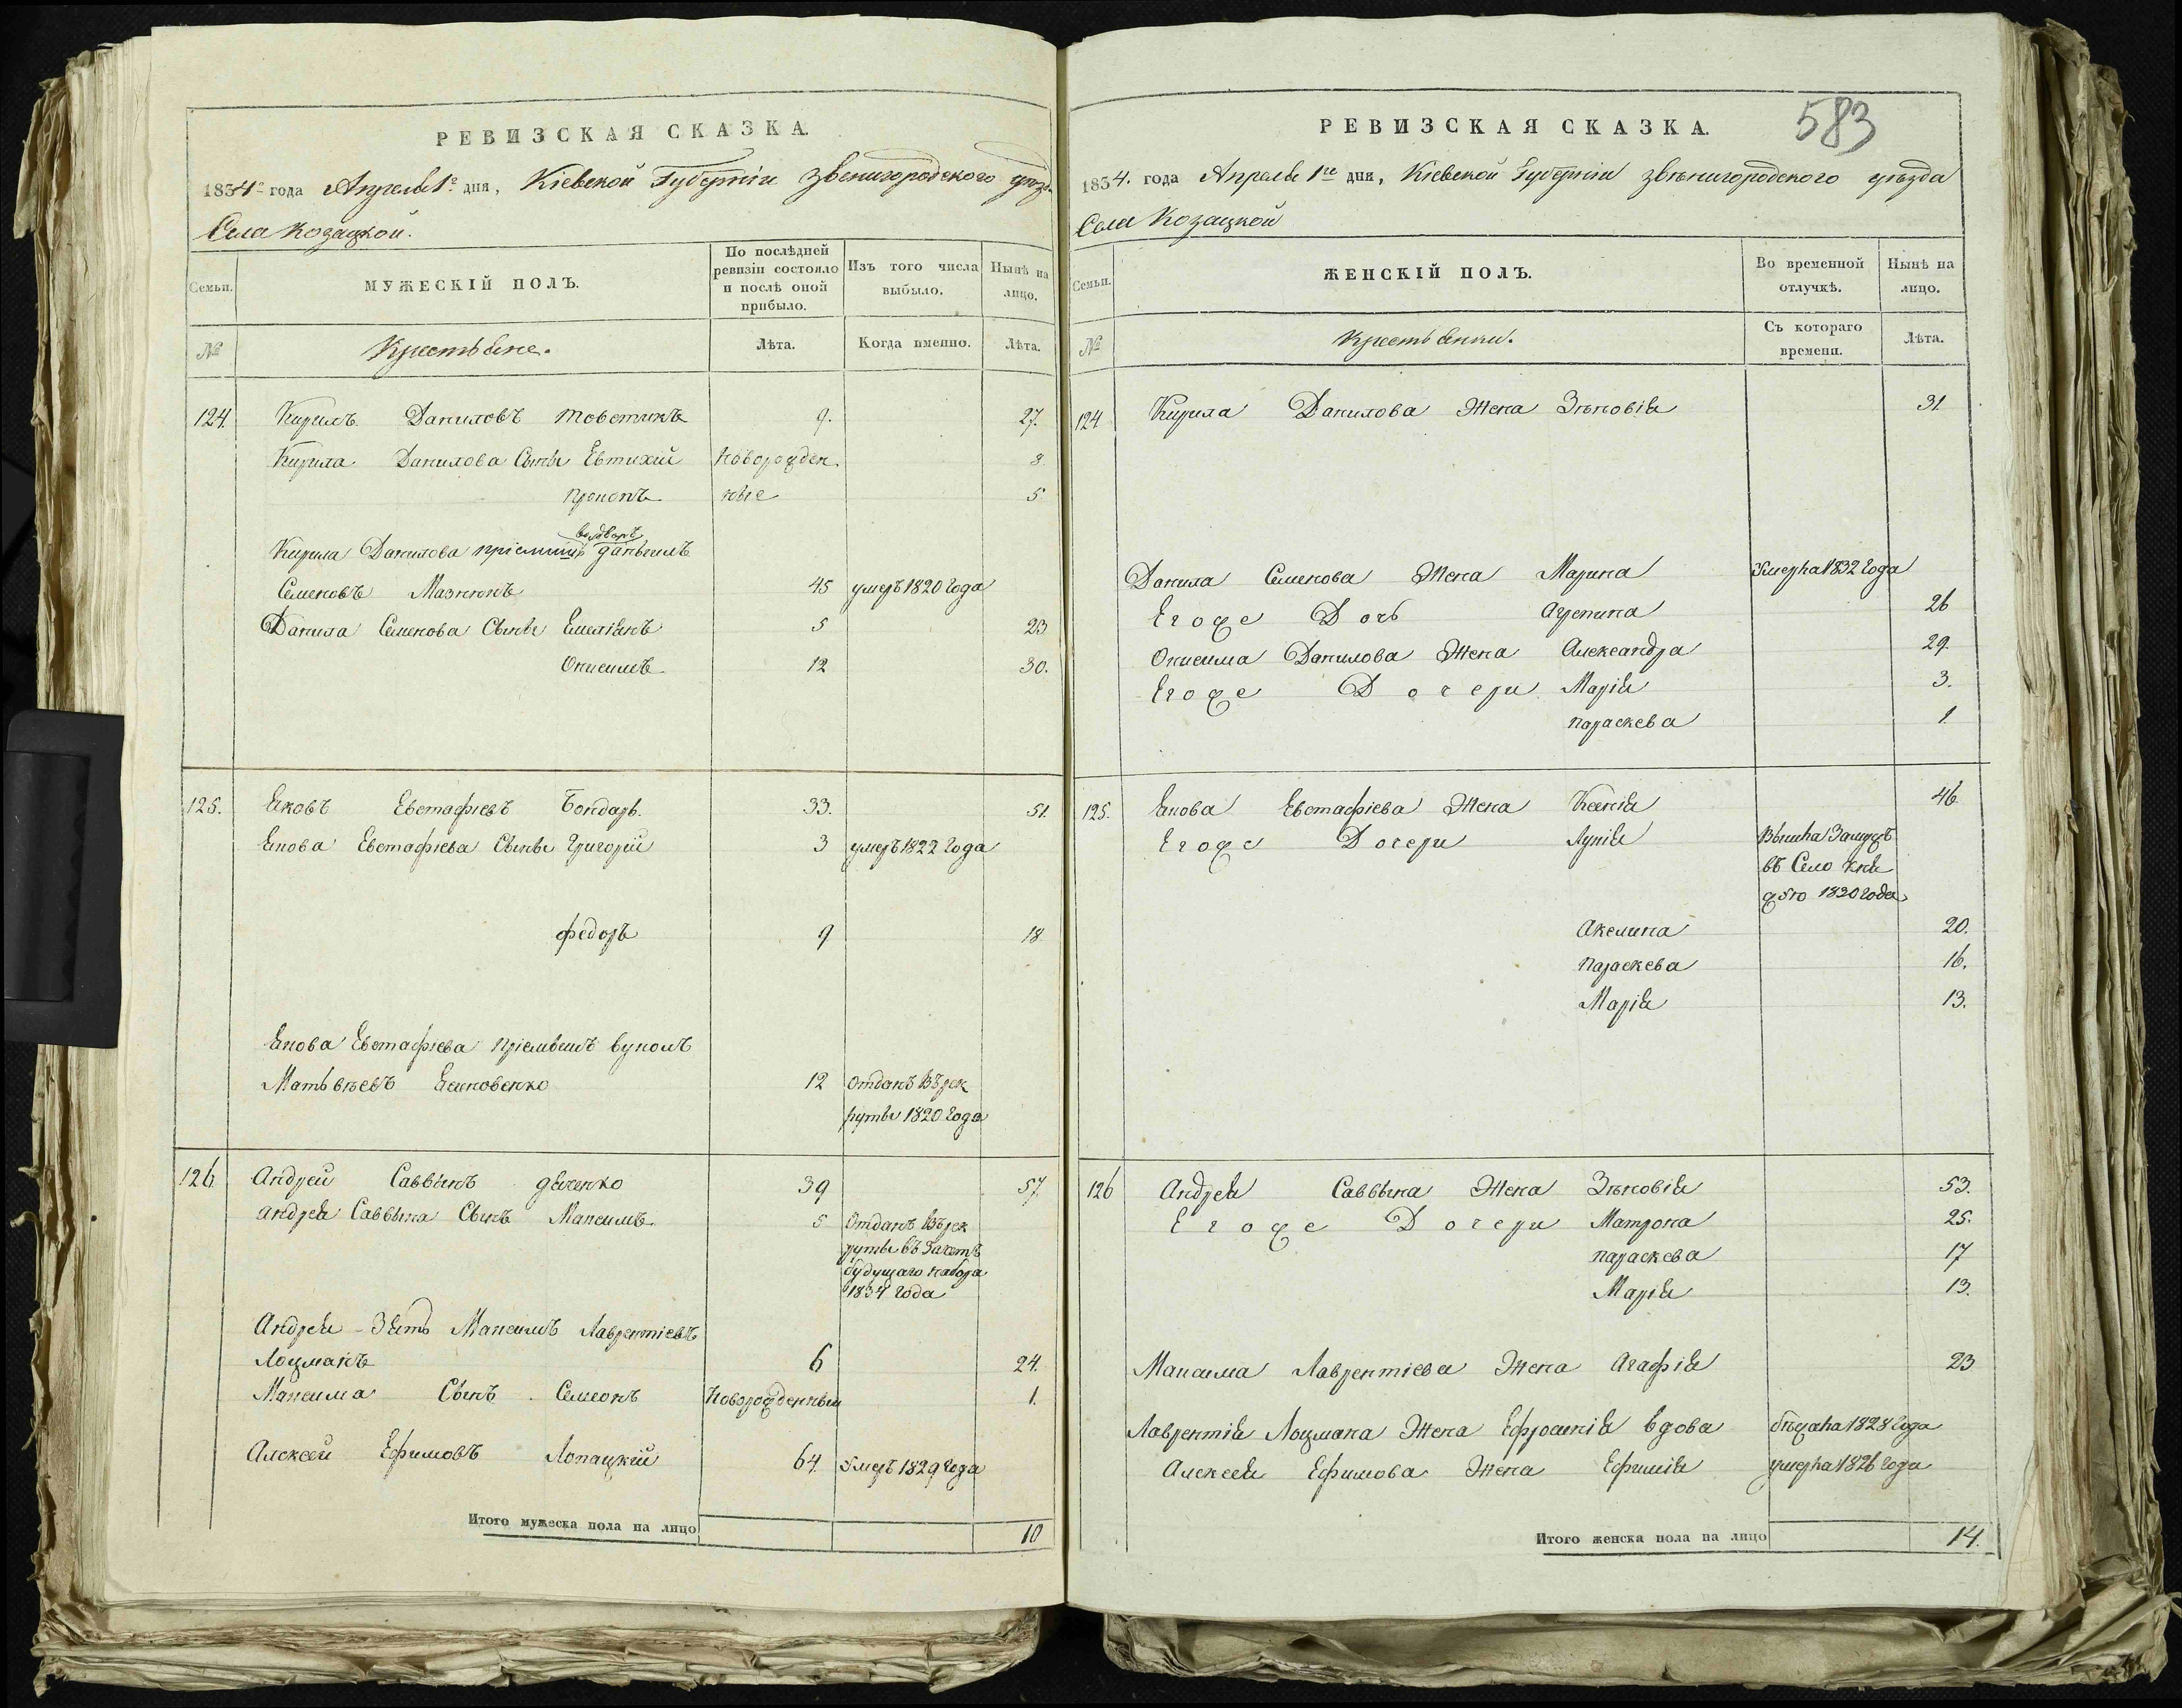 РЕВИЗСКАЯ СКАЗКА.
1834го года Апреля 1го дня, Кіевской Губерніи Звенигородского уезда
Села Козацкой.
Семьи.
МУЖЕСКІЙ ПОЛЪ.
По послѣдней ревизіи состояло и послѣ оной прибыло.
Изъ того числа выбыло.
Нынѣ на лицо.
№
Крестьяне.
Лѣта.
Когда именно.
Лѣта.
124. Кирилъ Даниловъ Товстикъ 9. 27.
Кирила Данилова Сыны Евтихій Новорожден 3
Прокопъ ные 5
во дворѣ
Кирила Данилова пріемыщъ Даниилъ
Семеновъ Мазнюкъ 45 умеръ 1820 года
Данила Семенова Сыны Емеліянъ 5 23
Онисимъ 12 30.
125. Яковъ Евстафіевъ Бондарь. 33. 51.
Якова Евстафіева Сыны Григорій 3 умеръ 1822 года
Федоръ 9 18
Якова Евстафіева пріемышъ Вуколъ
Матьвѣевъ 12 отданъ въ рек
руты 1820 года
126 Андрей Саввинъ Дяченко 39 57.
Андрея Саввина Сынъ Максимъ 5 отданъ въ рек
руты въ Зачетъ
будущаго набора
1834 года
Андрея Зять Максимъ Лаврентіевъ
Лоцманъ 6 24.
Максима Сынъ Семеонъ Новорожденный 1.
Алексей Ефимовъ Лопацкій 64. умеръ 1829 года
Итого мужеска пола на лицо 10
583
РЕВИЗСКАЯ СКАЗКА.
1834. года Апреля 1го дня, Кіевской Губерніи Звѣнигородского уѣзда
Села Козацкой
Семьи.
ЖЕНСКІЙ ПОЛЪ.
Во временной отлучкѣ.
Нынѣ на лицо.
№
Крестьянки.
Съ котораго времени.
Лѣта.
124 Кирила Данилова Жена Зѣновія 31.
Данила Семенова Жена Марина Умерла 1832 года
Егоже Дочь Агрепина 26
Онисима Данилова Жена Александра 29.
Егоже Дочери Марія 3.
Параскева 1.
125. Якова Евстафіева Жена Ксенія 46
Егоже Дочери Лукія Вышла Замужъ
въ Село Кня
жую 1830 года
Акелина 20.
Параскева 16.
Марія 13.
126 Андрея Саввина Жена Зѣновія 53.
Егоже Дочери Матрона 25.
Параскева 17
Марія 13.
Максима Лаврентіева Жена Агафія 23
Лаврентія Лоцмана Жена Ефросинія вдова бѣжала 1828 года
Алексея Ефимова Жена Ефимія умерла 1826 года
Итого женска пола на лицо 14.